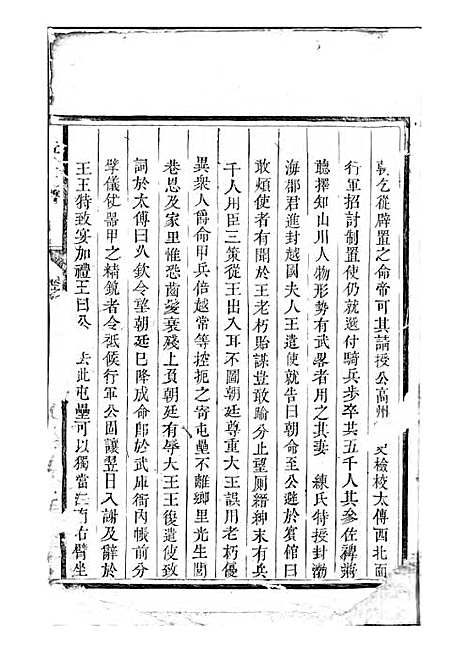 乞從辟置之命帝可其請授公高州 史檢校太傅西北面
行軍招討制置使仍就選付騎兵步卒共五千人其參佐裨蔣
聽擇知山川人物形勢有武畧者用之其妻 練氏特授封渤
海郡君進封越國夫人王遣使就告曰朝命至公遜於賓館曰
敢煩使者有聞於王老朽貽謀豈敢踰分止望厠縉紳末有兵
千人用臣三策從王出入耳不圖朝廷尊重大王誤用老朽優
異衆人爵命甲兵倍越常等控扼之寄屯壘不離鄉里光生閭
巷恩及家里惟恐齒髮衰殘上負朝廷有辱大王王後遣使致
詞於太傅曰公欽令望朝廷已降成命卽於武庫衙內帳前分
擘儀仗器甲之精銳者令祇候行軍公固讓翌日入謝及辭於
王王特致宴加禮王曰公 去此屯壘可以獨當 南右臂坐